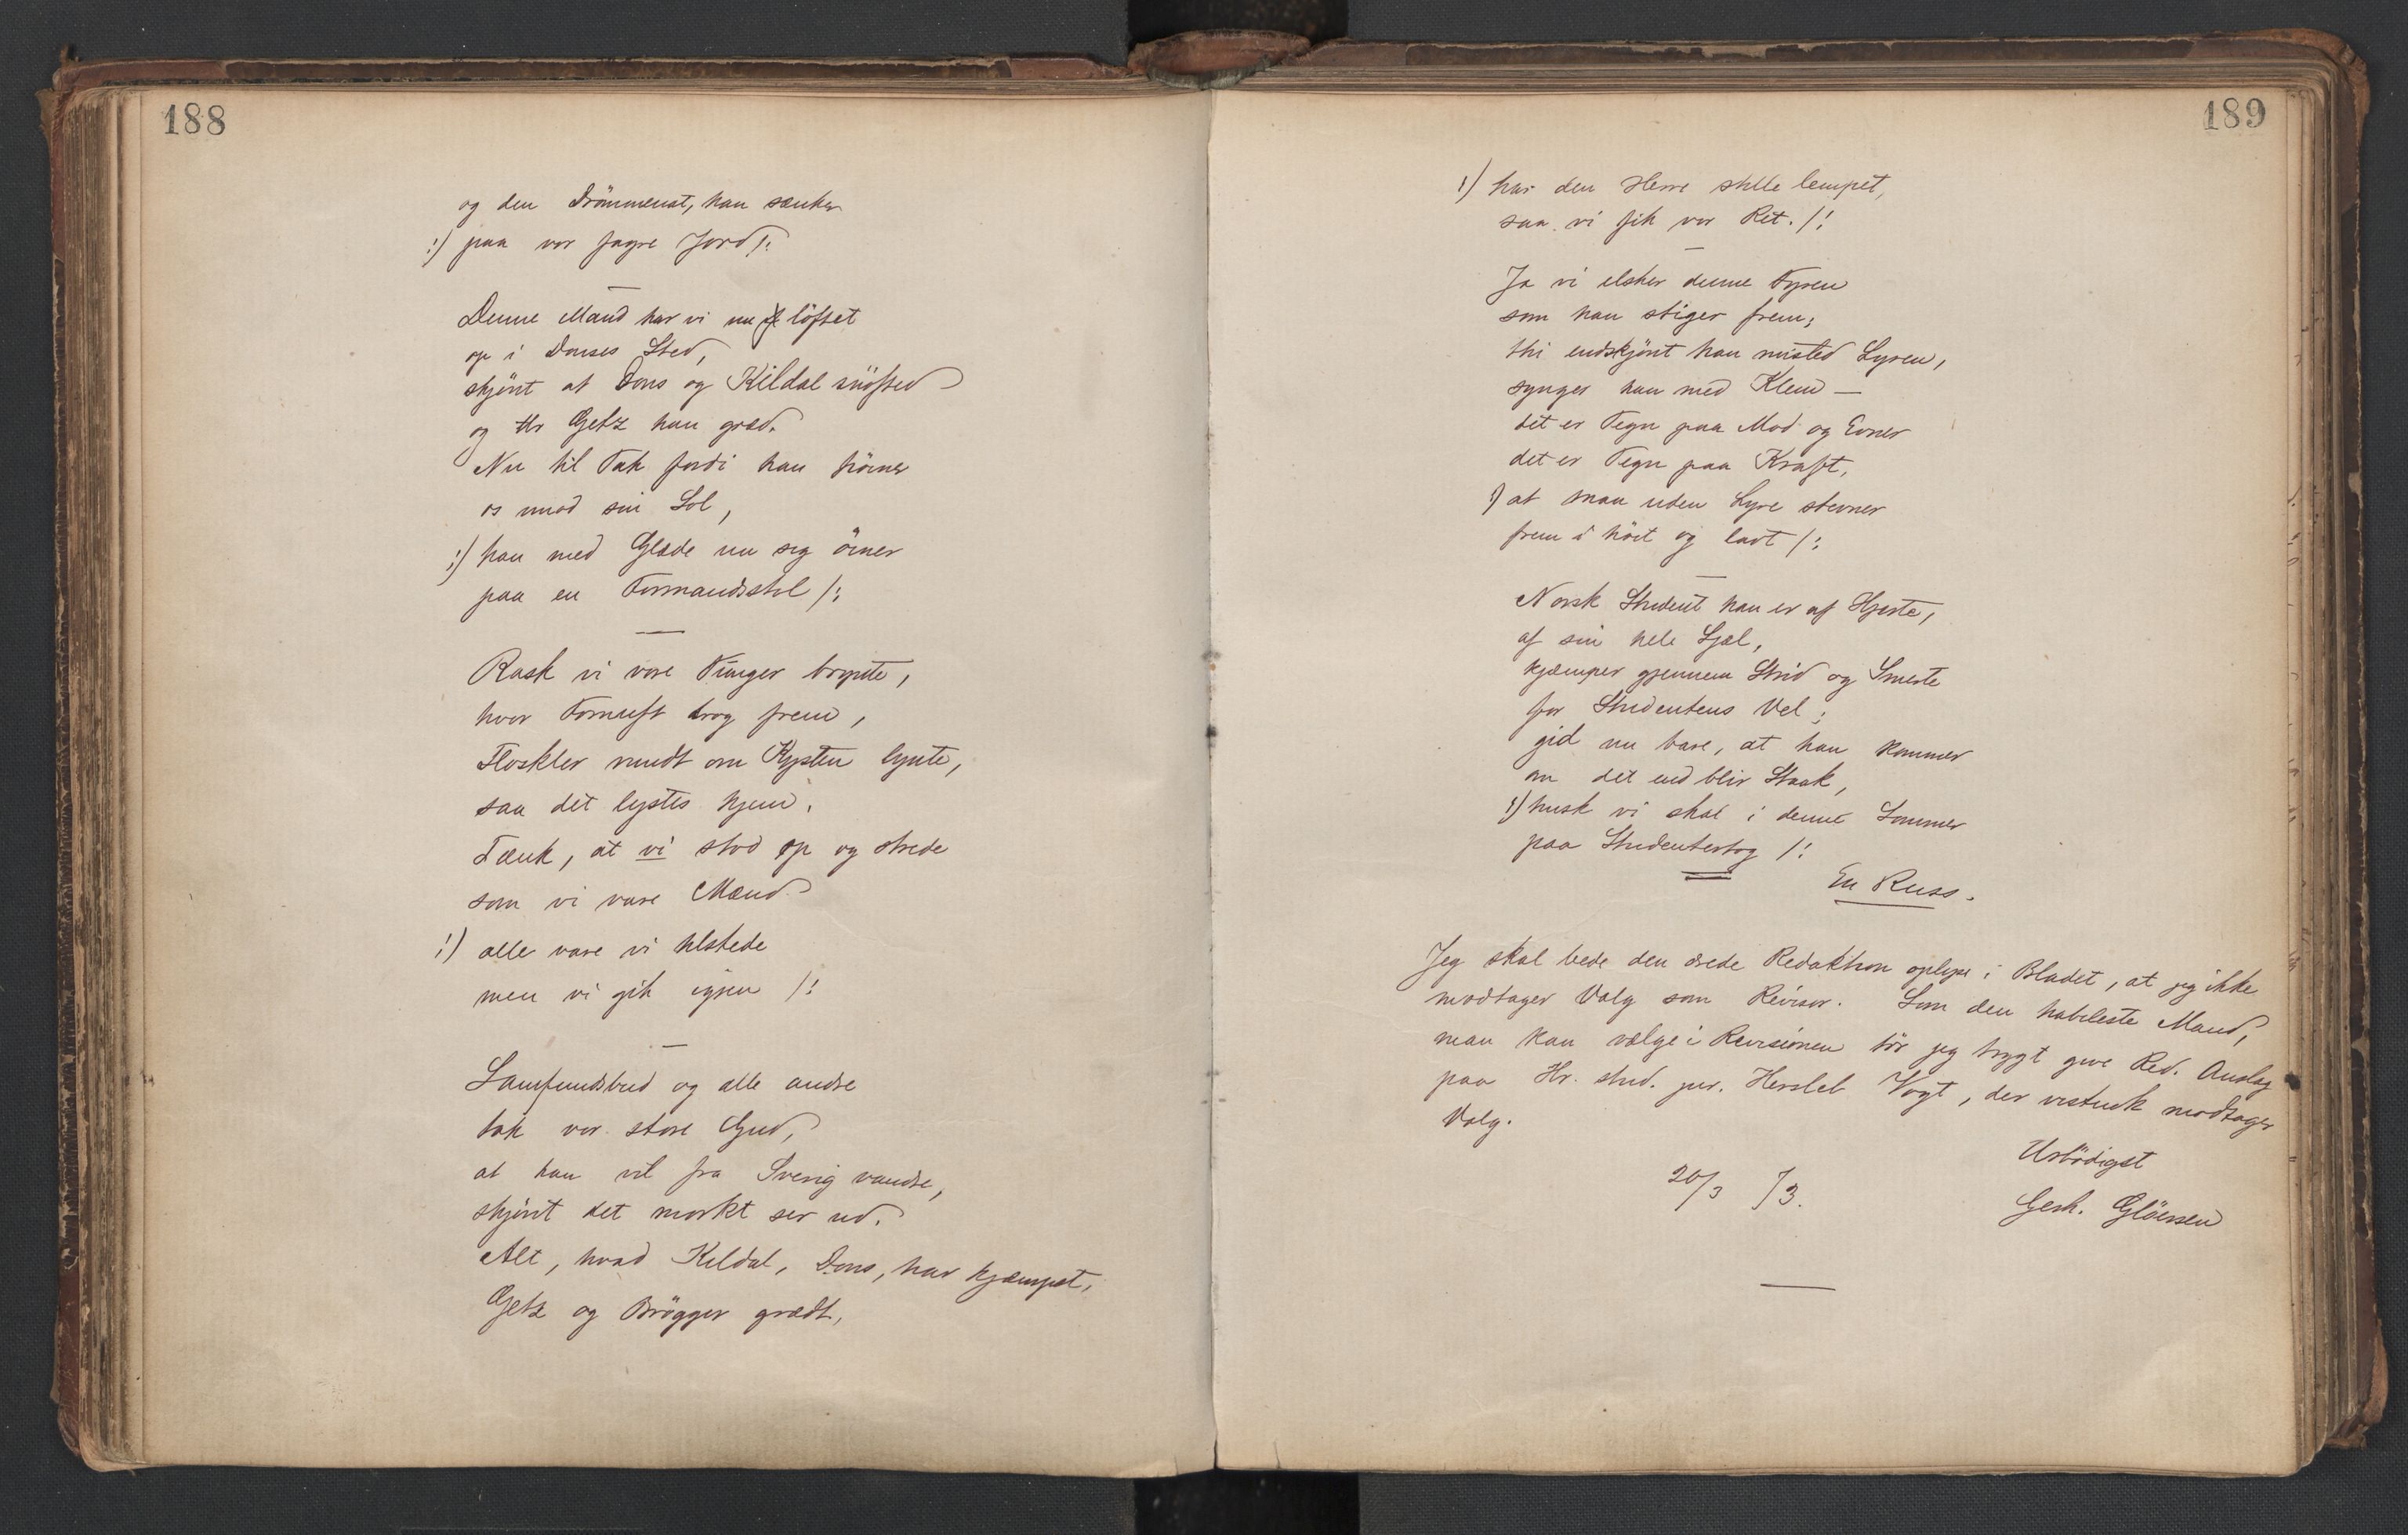 188
og den Drömmenat, han sænker
:/ paa vor fagre Jord /:
Denne Mand har vi nu löftet
op i Donses Sted,
skjönt at Dons og Kildal snöfted
og Hr Getz han græd.
Nu til Tak fordi han hörner
os mod sin Sol,
:/ han med Glæde nu sig örner
paa en Formandsstol /:
Rask vi vore Vinger brynte,
hvor Fornuft drog frem,
Floskler rundt om Kysten lynte,
saa det lystes hjem.
Tænk, at vi stod op og strede
som vi vare Mænd
:/ alle vare vi tilstede
men vi gik igjen /:
Samfundsbud og alle andre
tak vor store Gud,
at han vil fra Sverig vandre,
skjönt det mørkt ser ud.
Alt, hvad Kildal, Dons, har kjæmpet,
Getz og Brögger grædt,
189
:/ har den Herre stille lempet,
saa vi fik vor Ret. /:
Ja vi elsker denne Fyren
som han stiger frem;
thi endskjönt han misted Lyren,
synger han med Klem —
det er Tegn paa Mod og Evner
det er Tegn paa Kraft,
:/ at man uden Lyre stevner
frem i höit og lavt /:
Norsk Student han er af Hjerte,
af sin hele Sjæl,
kjæmper gjennem Strid og Smerte
for Studentens Vel;
gid nu bare, at han kommer
om det end blir Staak,
:/ husk vi skal i denne Sommer
paa Studentertog /:
En Russ.
Jeg skal bede den ærede Redaktion oplyse i Bladet, at jeg ikke
modtager Valg som Revisor. Som den habileste Mand,
man kan vælge i Revisionen tör jeg trygt give Red. Anslag
paa Hr. stud. jur. Hersleb Vogt, der vistnok modtager
Valg.
20/3 73.
Ærbödigst
Gerh. Glöersen